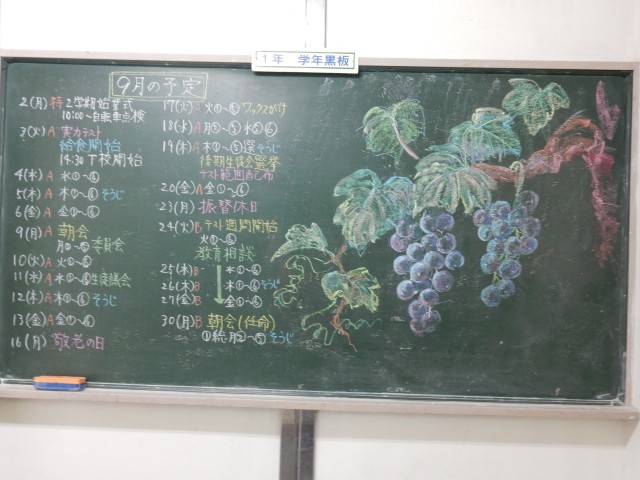 1年 学年黒板
9月の予定
2(月) 特 2学期始業式
10:00~自転車点検
3(火) A 実力テスト
給食開始
14:30 下校開始
4(水) A 水①~⑥
5(木) A 木①~⑥ そうじ
6(金) A 金①~⑥
9(月) A 朝会
月②~⑤ 委員会
10(火) A 火①~⑥
11(水) A 水①~⑥ 生徒議会
12(木) A 木①~⑥ そうじ
13(金) A 金①~⑥
16(月) 敬老の日
17(火) A 火①~⑤ ワックスがけ
18(水) A 月⑤ 水⑤⑥
19(木) A 木①~⑤ 選 そうじ
後期生徒会選挙
テスト範囲配布
20(金) A 金①~⑥
23(月) 振替休日
24(火) B テスト週間開始
火①~⑥
教育相談
25(水) B 水①~⑥
26(木) B 木①~⑥ そうじ
27(金) B 金①~⑥
30(月) B 朝会(任命)
①続.月②~⑤ そうじ